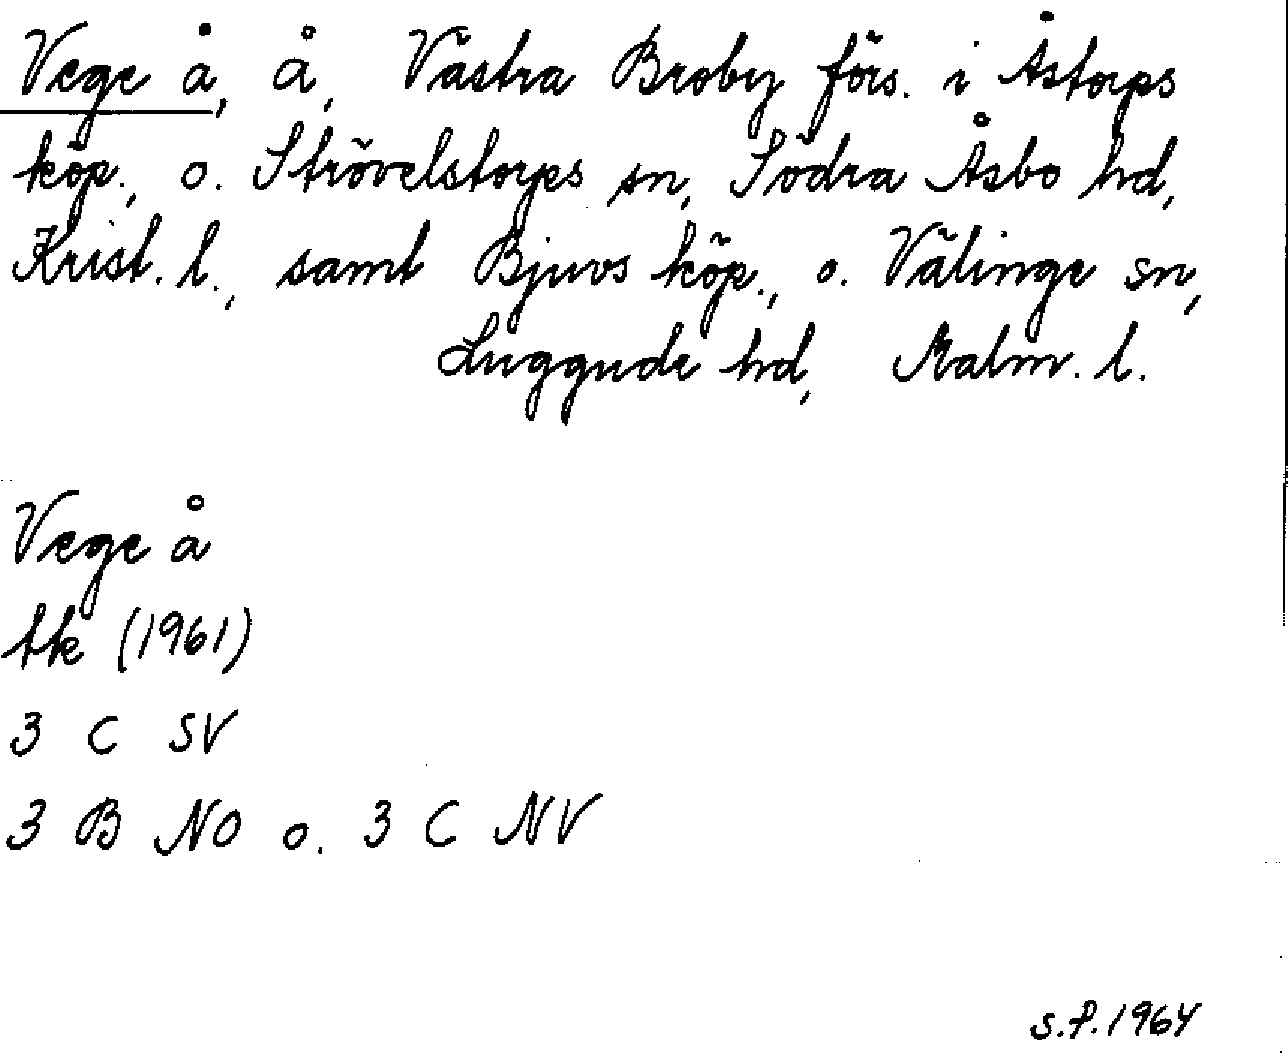 Vege å, å, Västra Broby förs. i Åstorps
köp., o. Strövelstorps sn, Södra Åsbo hd,
Krist. l., samt Bjuvs köp., o. Välinge sn,
Luggude hd, Malm. l.
Vege å
tk (1961)
3 C SV
3 B NO o. 3 C NV
s.f. 1964